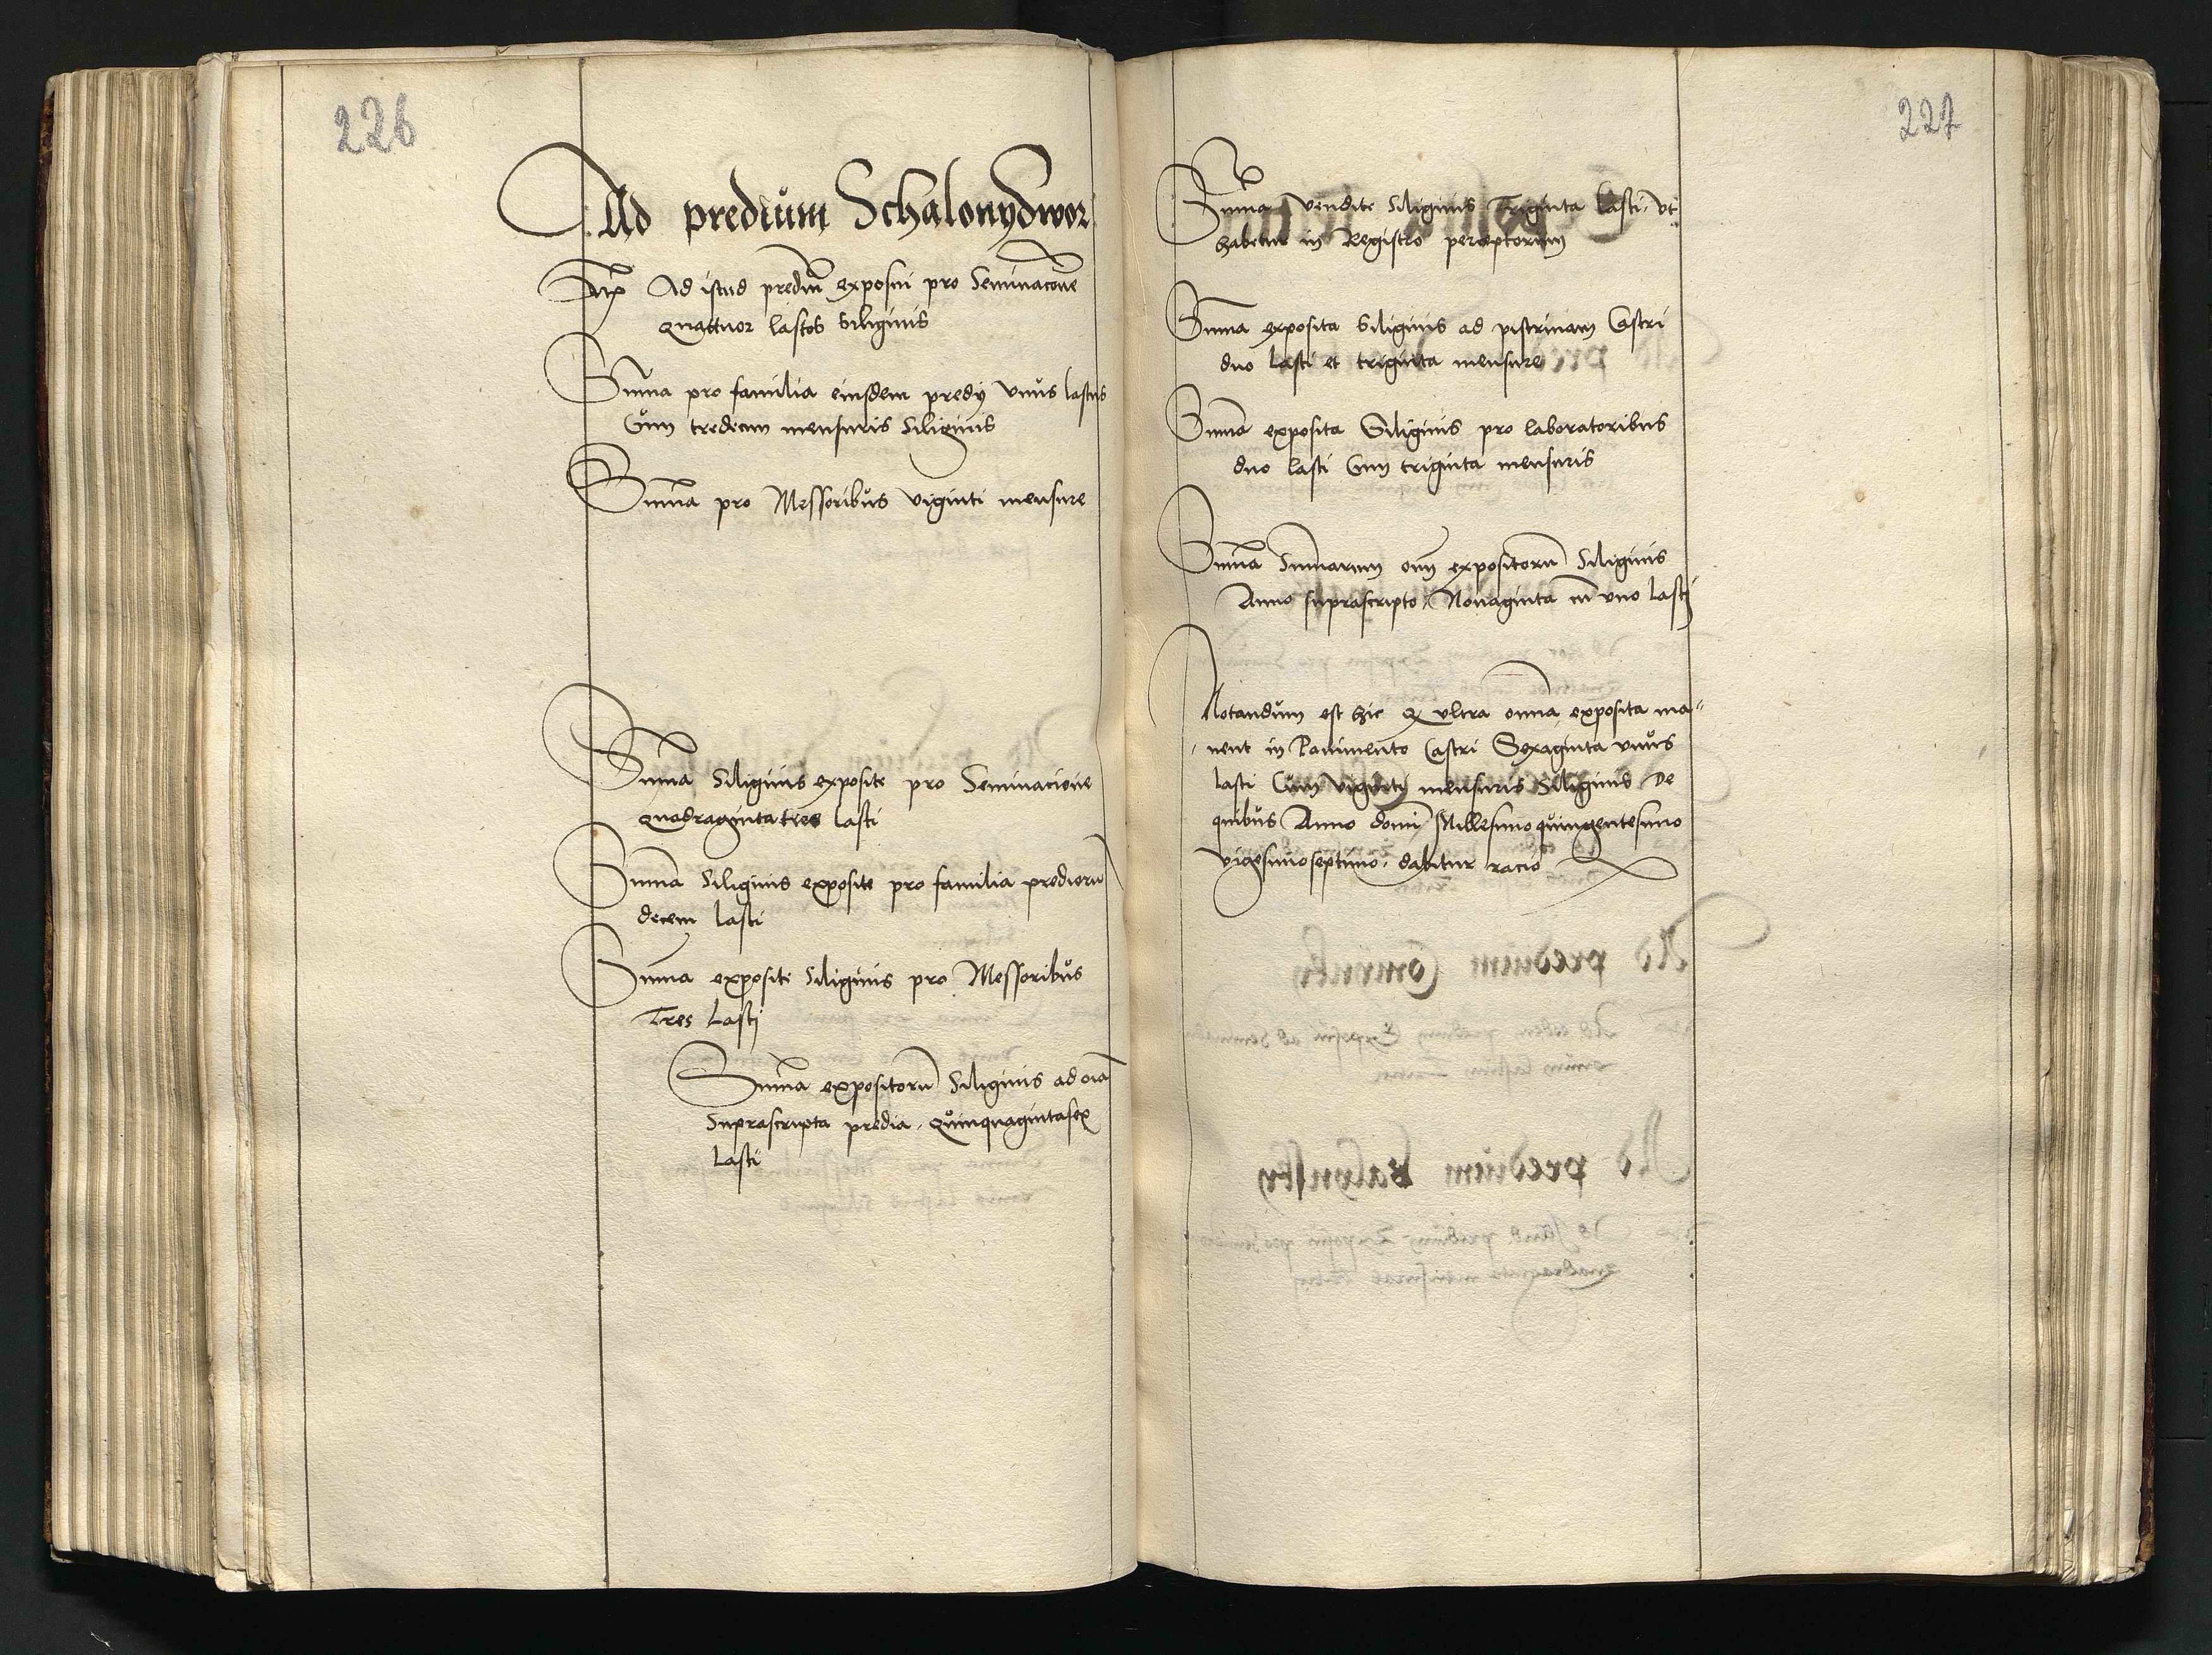 226
Ad predium Schalonydwor
Itē Ad istud prediū exposui pro Seminacōne
quattuor lastos siliginis
Suma pro familia eiusdem predij vnus lastus
Cum tredecim mensuris Siliginis
Suma pro Messoribus viginti mensure
Suma Siliginis exposite pro Seminacione
quadraginta tres lasti
Suma Siliginis exposite pro familia predioru
decem lasti
Suma expositi Siliginis pro Messoribus
Tres Lasti
Suma expositoru Siliginis ad oia
Suprascripta predia, quinquagintasex
Lasti
227
Suma vendite Siliginis Triginta lasti, vt
habetur in Registro perceptorum
Suma exposita Siliginis ad pistrinam Castri
duo lasti et triginta mensure
Suma exposita Siliginis pro laboratoribus
duo lasti Cum triginta mensuris
Suma Sumarum oim expositoru Siliginis
Anno suprascripto, Nonaginta cu vno lasti
Notandum est hic q vltra omnia exposita ma-
nent in Pauimento Castri Sexaginta vnus
lasti Cum viginti mensuris Siliginis De
quibus Anno domi Millesimo quingentesimo
vigesimoseptimo, dabitur racio